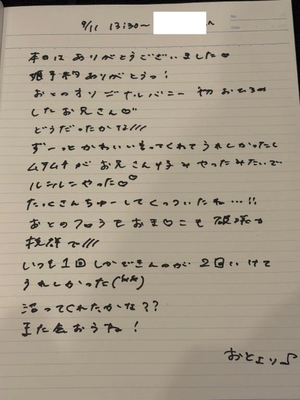 9/11 13:30〜 へ
本日はありがとうございました♡
姫予約ありがとう!
おとのオリジナルバニー初おひろめ
したお兄さん♡
どうだったかな///
ずーっとかわいいもってくれてうれしかったし
ムチムチがお兄さん好みやったみたいで
ルンルンやった♡
たくさんちゅーしてくっついたね…!!
おとのフロうでおま○こも破壊力
抜群で///
いつも1回しかできんのが2回いけて
うれしかった
沼ってくれたかな??
また会おうね!
おとより♪